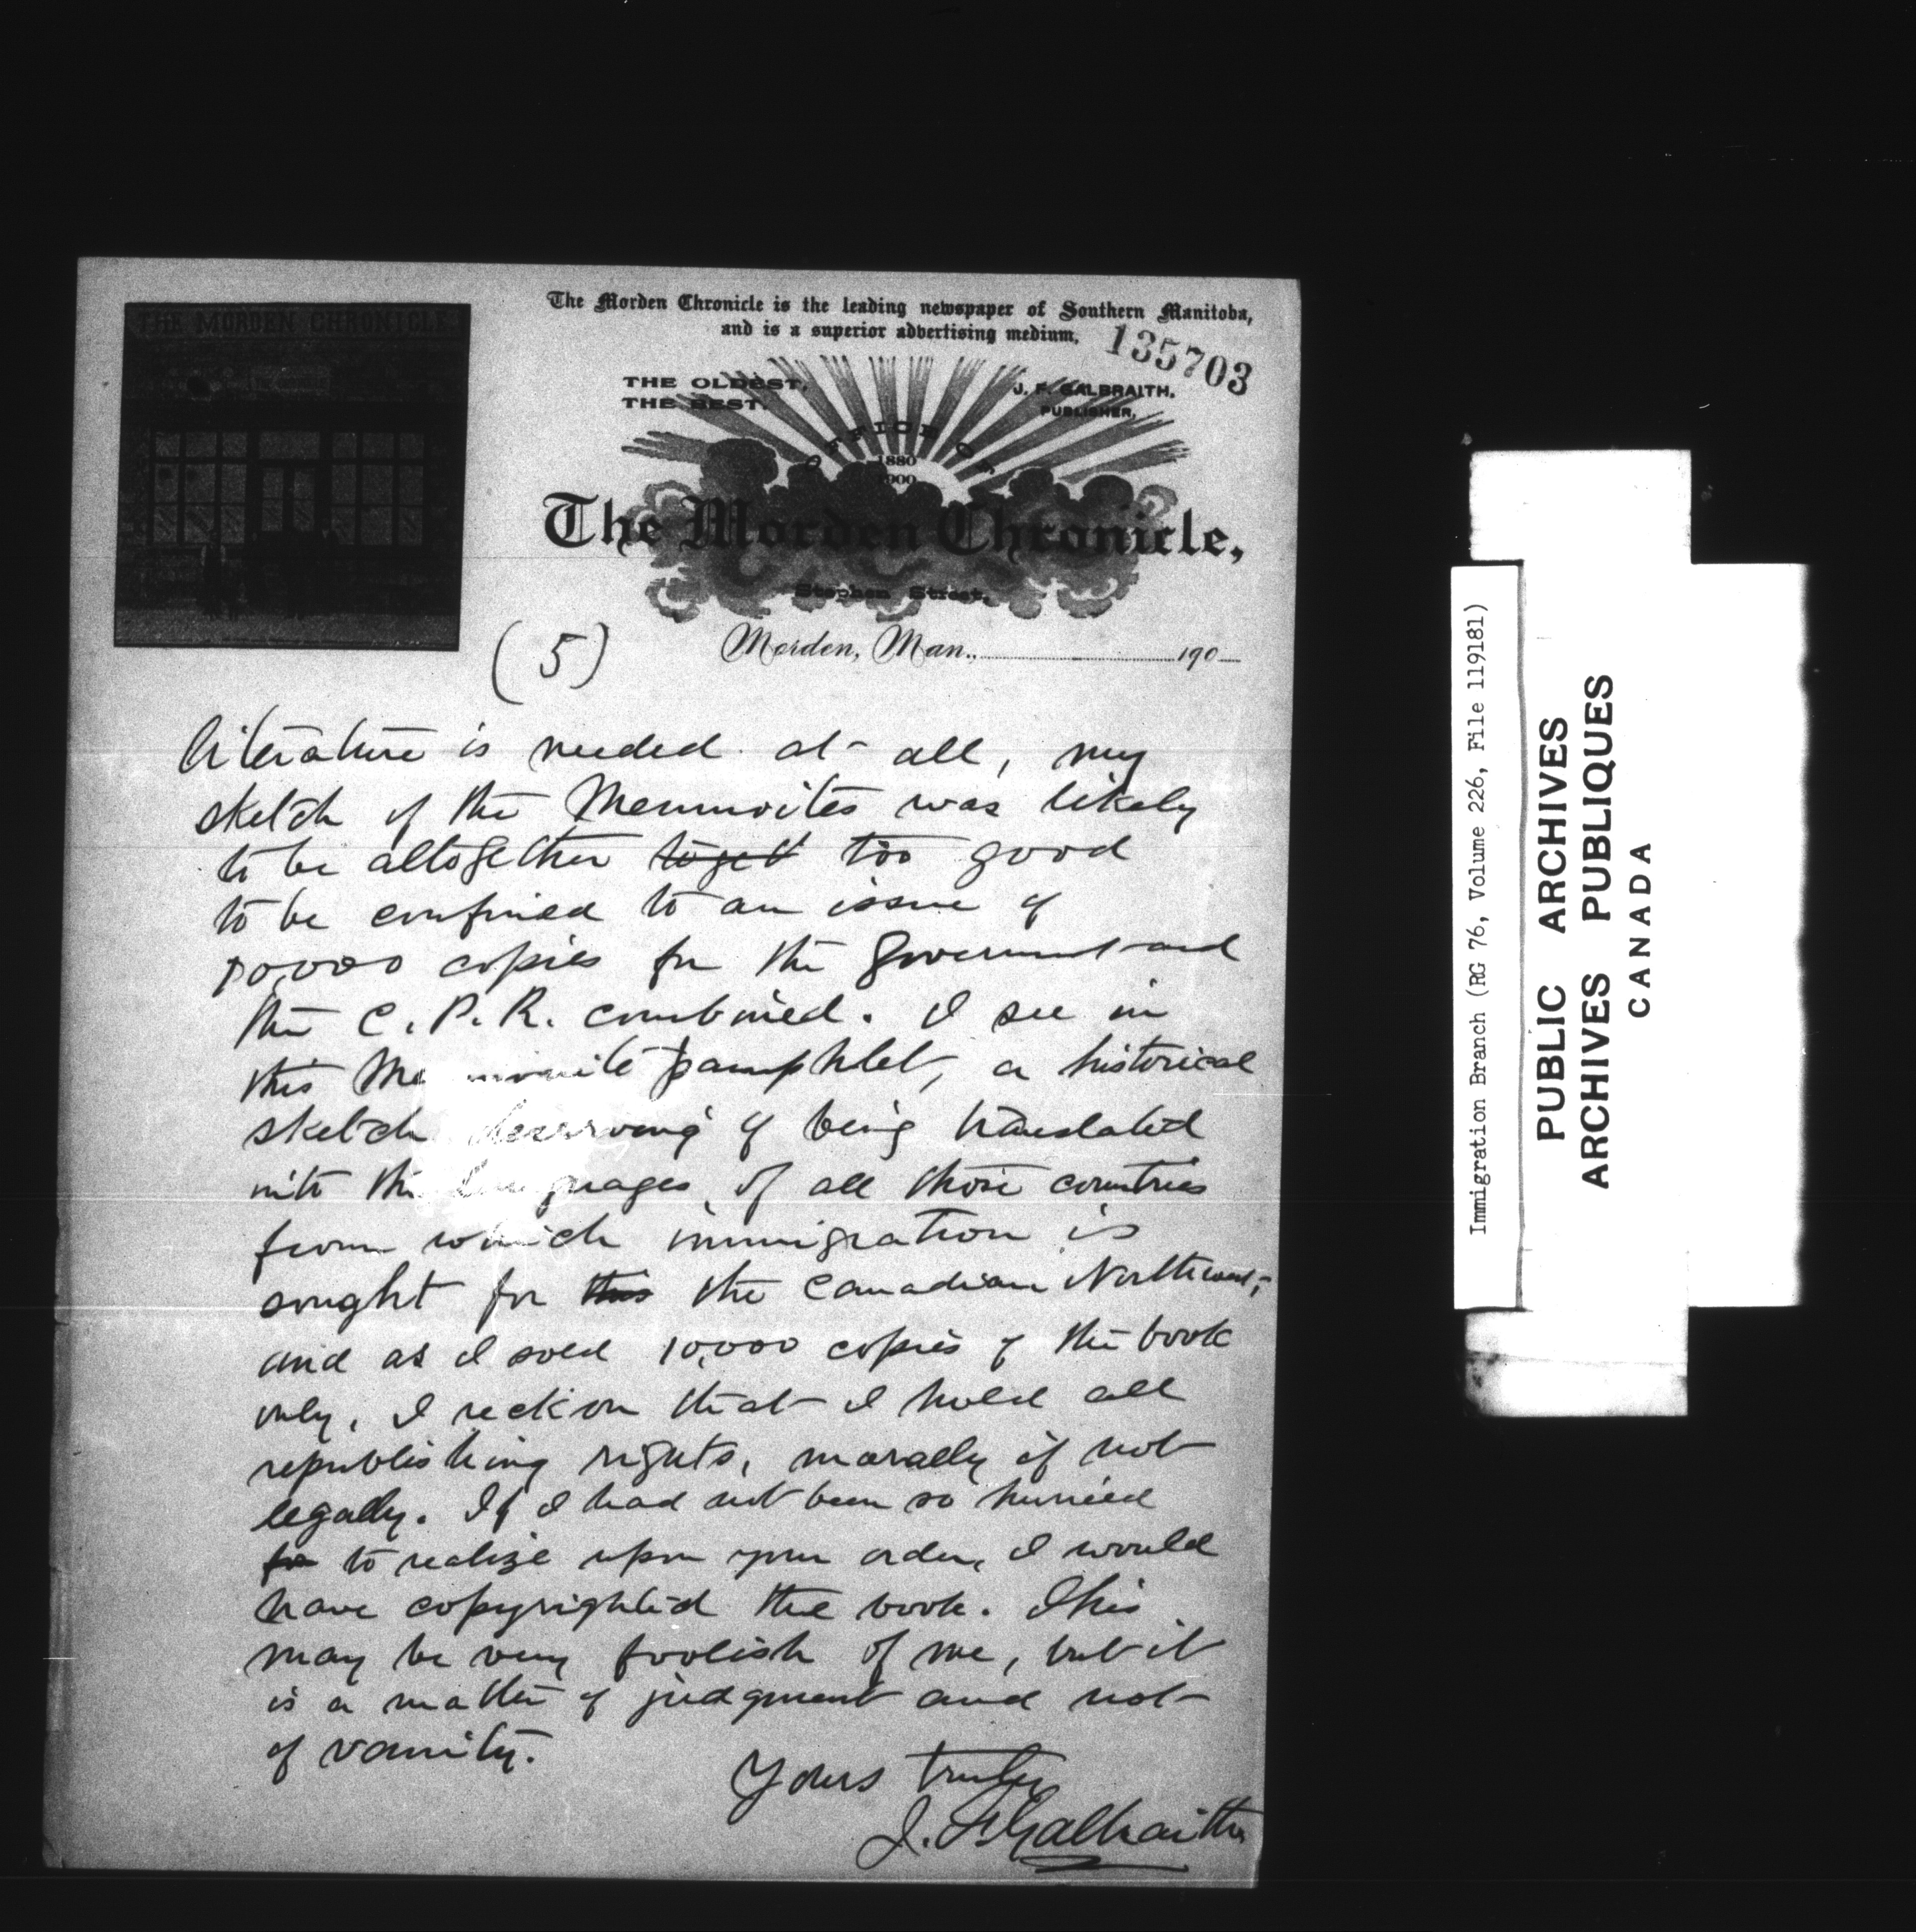 THE MORDEN CHRONICLE
The Morden Chronicle is the leading newspaper of Southern Manitoba,
and is a superior advertising medium.
135703
THE OLDEST,
THE BEST.
J. F. GALBRAITH,
PUBLISHER,
OFFICE OF
1880
1900
The Morden Chronicle,
Stephen Street,
Morden, Man., 190
(5)
literature is needed at all, my
sketch of the Mennonites was likely
to be altogether togeth too good
to be confined to an issue of
10,000 copies for the Government and
the C. P. R. combined. I see in
this Mennonite pamphlet, a historical
sketch deserving of being translated
into the languages of all those countries
from which immigration is
sought for this the Canadian Northwest;
and as I sold 10,000 copies of the book
only, I reckon that I hold all
republishing rights, morally if not
legally. If I had not been so hurried
for to realize upon your order, I would
have copyrighted the book. This
may be very foolish of me, but it
is a matter of judgment and not
of vanity.
Yours truly
J. F. Galbraith
Immigration Branch (RG 76, Volume 226, File 119181)
PUBLIC ARCHIVES
ARCHIVES PUBLIQUES
CANADA